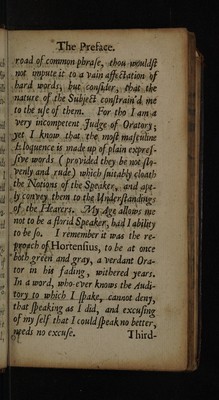 The Preface.
road of common phrase, thou wouldst
not impute it to a vain affectation of
hard words, but consider, that the
nature of the Subject constrain'd me
to the use of them. For tho I am a
very incompetent Judge of Oratory;
yet I know that the most masculine
Eloquence is made up of plain expres-
sive words (provided they be not slo-
venly and rude) which suitably cloath
the Notions of the Speaker, and apt-
ly convey them to the Understandings
of the Hearers. My Age allows me
not to be a florid Speaker, had I ability
to be so. I remember it was the re-
proach of Hortensius, to be at once
both green and gray, a verdant Ora-
tor in his fading, withered years.
In a word, who-ever knows the Audi-
tory to which I spake, cannot deny,
that speaking as I did, and excusing
of my self that I could speak no better,
needs no excuse.
Third-